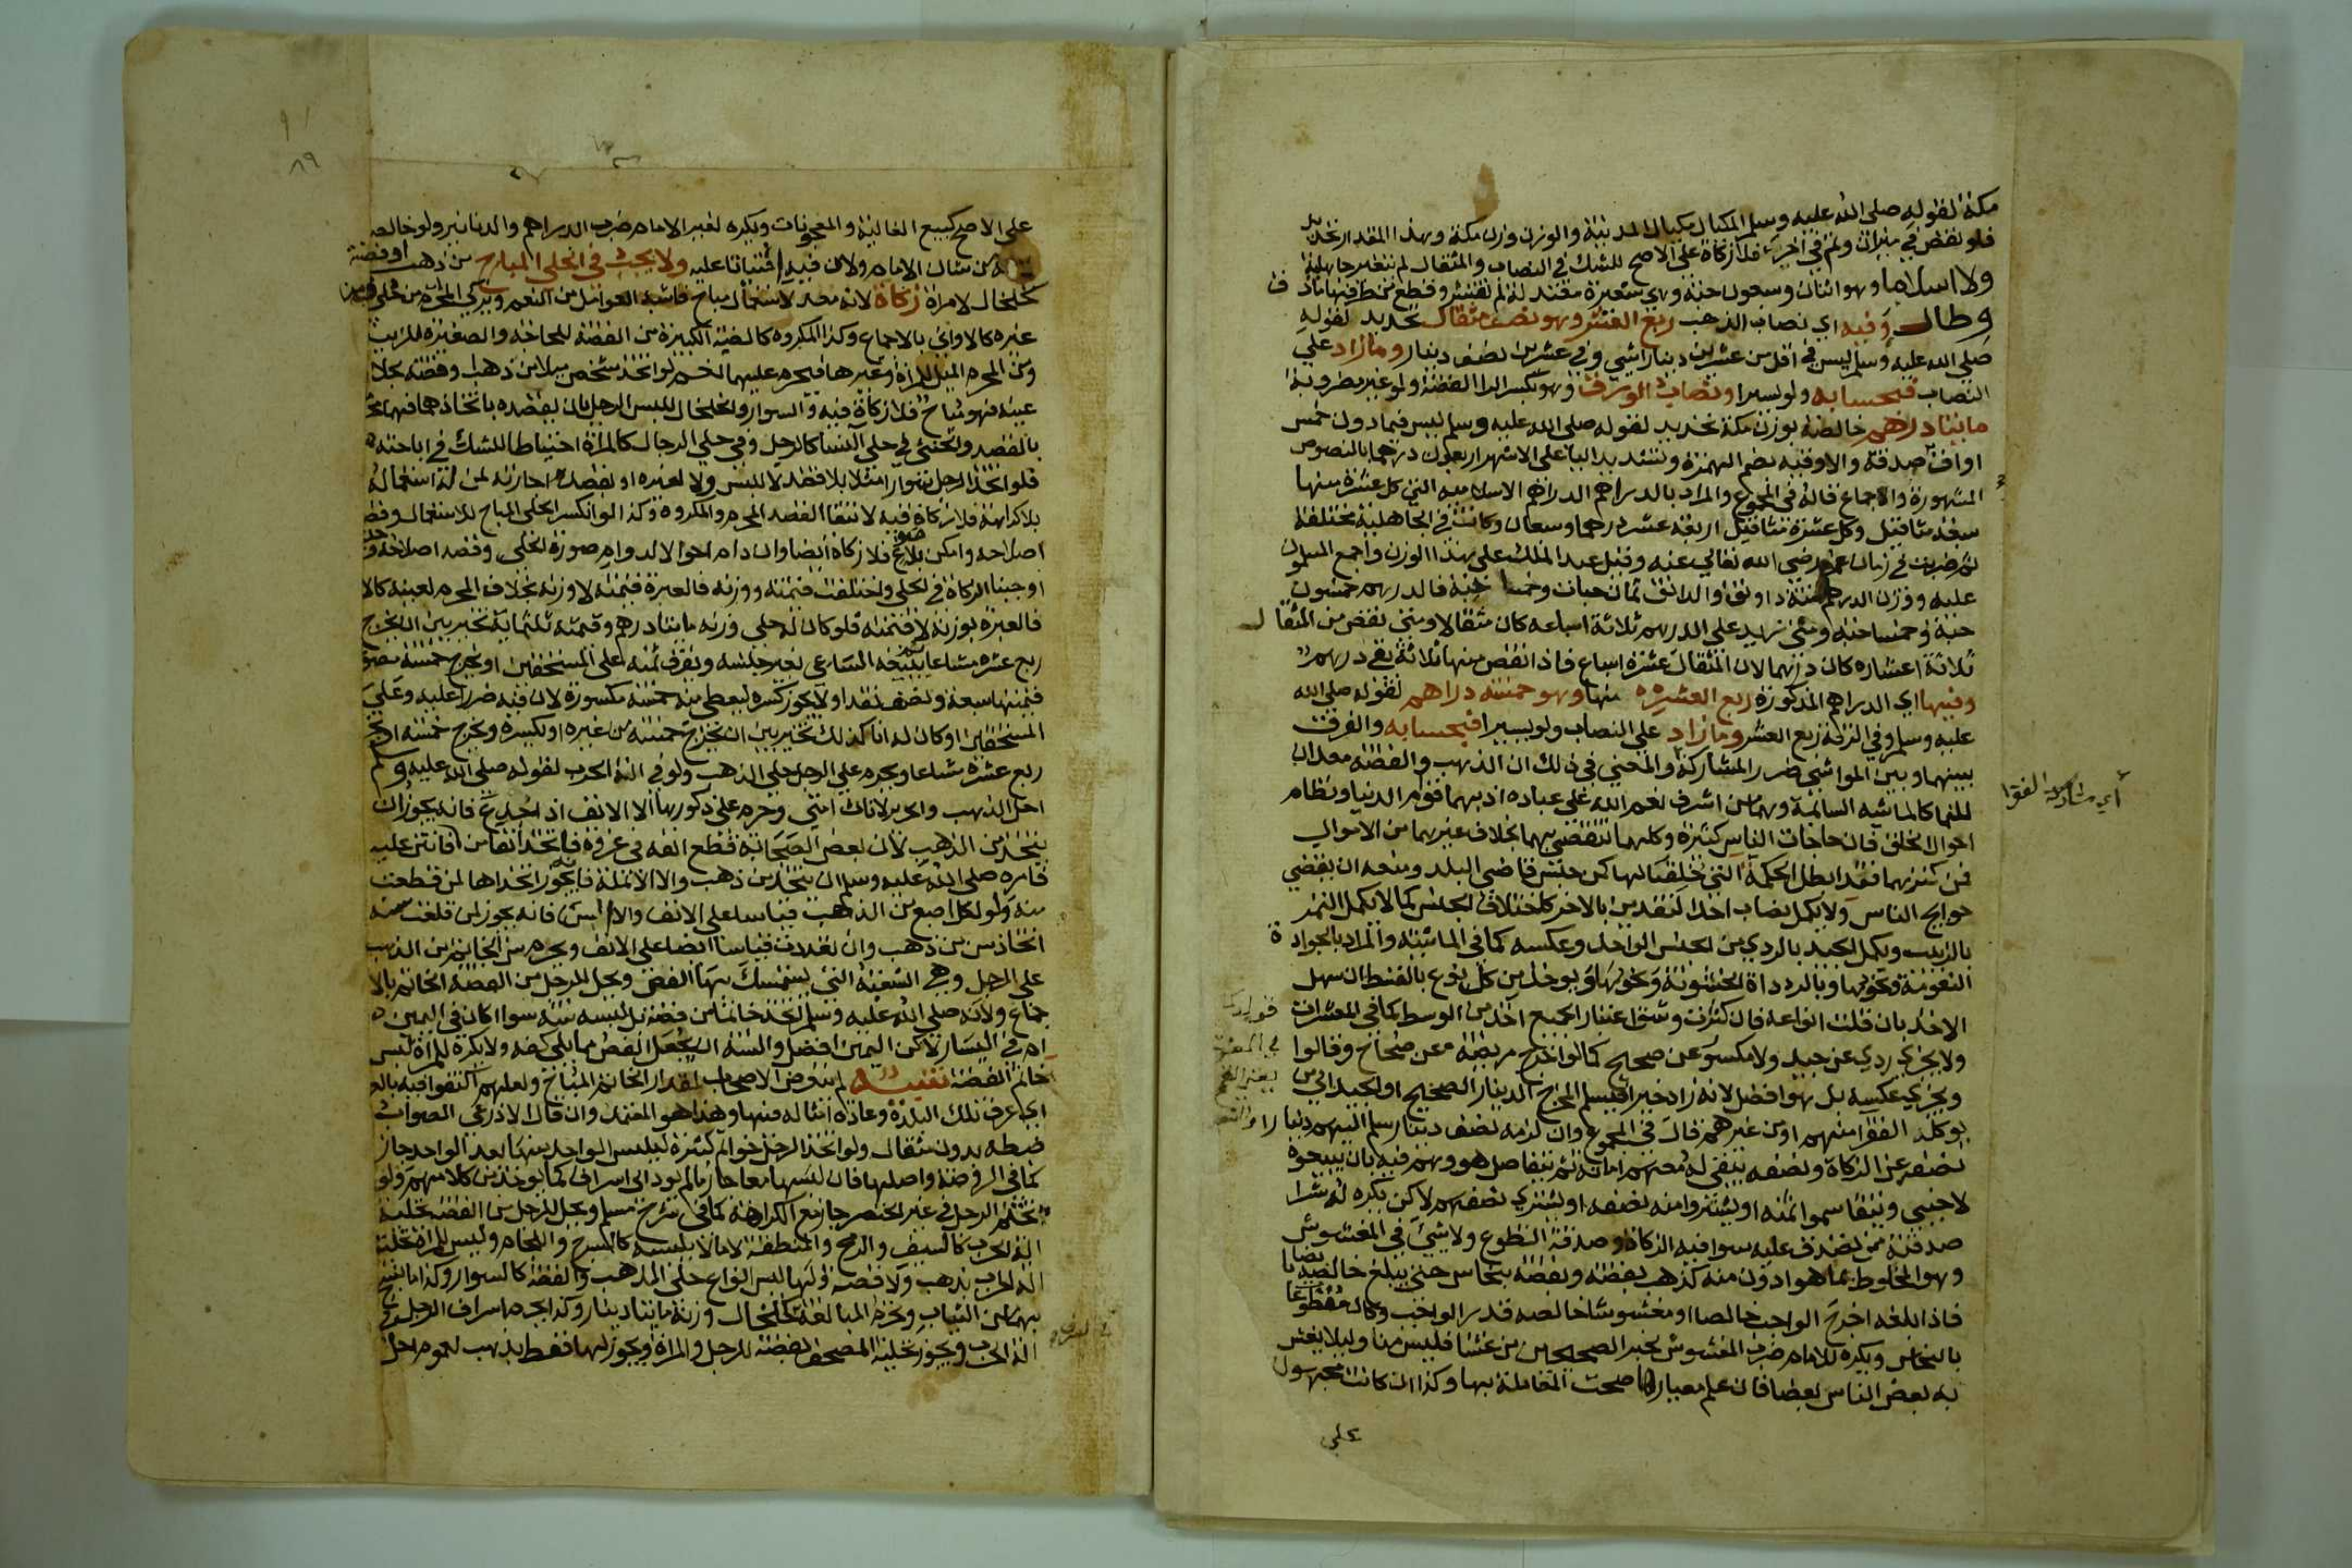 مكة لقوله صلى الله عليه وسلم المكيال مكيال المدينة والوزن وزن مكة وهذا المقدار تحديد
فلو نقص في ميزان وتم في اخرى فلا زكاة على الاصح للشك في النصاب والمثقال لم يتغير جاهلية
ولا اسلاما وهو اثنان وسبعون حبة وهي شعيرة معتدلة لم تقشر وقطع من طرفيها ما دق
وطال وفيه اي نصاب الذهب ربع العشر وهو نصف مثقال تحديد لقوله
صلى الله عليه وسلم ليس في اقل من عشرين دينارا شي وفي عشرين نصف دينار وما زاد على
النصاب فبحسابه ولو يسيرا ونصاب الورق وهو بكسر الرا الفضة ولو غير مضروبة
مايتا درهم خالصة بوزن مكة تحديد لقوله صلى الله عليه وسلم ليس فيما دون خمس
اواق صدقة والاوقية بضم الهمزة وتشديد اليا على الاشهر اربعون درهما بالنصوص
المشهورة والاجماع قاله في المجموع والمراد بالدراهم الدراهم الاسلامية التي كل عشرة منها
سبعة مثاقيل وكل عشرة مثاقيل اربعة عشر درهما وسبعان وكانت في الجاهلية مختلفة
ثم ضربت في زمان عمر رضي الله تعالى عنه وقيل عبد الملك على هذا الوزن واجمع المسلمون
عليه ووزن الدرهم ستة دوانق والدانق ثمان حبات وخمسا حبة فالدرهم خمسون
حبة وخمسا حبة ومتى زيد على الدرهم ثلاثة اسباعه كان مثقالا ومتى نقص من المثقال
ثلاثة اعشاره كان درهما لان المثقال عشرة اسباع فاذا نقص منها ثلاثة بقي درهم
وفيها اي الدراهم المذكورة ربع العشر منها وهو خمسة دراهم لقوله صلى الله
عليه وسلم وفي الرقة ربع العشر وما زاد على النصاب ولو يسيرا فبحسابه والفرق
بينهما وبين المواشي ضرر المشاركة والمعنى في ذلك ان الذهب والفضة معدان
للنما كالماشية السايمة وهما من اشرف نعم الله على عباده اذ بهما قوام الدنيا ونظام
احوال الخلق فان حاجات الناس كثيرة وكلها تنقضي بهما بخلاف غيرهما من الاموال
فمن كنزهما فقد ابطل الحكمة التي خلقا لها كمن حبس قاضي البلد ومنعه ان يقضي
حوايج الناس ولا يكمل نصاب احد النقدين بالاخر لاختلاف الجنس كما لا يكمل التمر
بالزبيب ويكمل الجيد بالردي من الجنس الواحد وعكسه كما في الماشية والمراد بالجودة
النعومة ونحوها وبالرداة الخشونة ونحوها ويوخذ من كل نوع بالقسط ان سهل
الاخذ بان قلت انواعه فان كثرت وشق اعتبار الجميع اخذ من الوسط كما في المعشرات
ولا يجزي ردي عن جيد ولا مكسور عن صحيح كما لو اخرج مريضة عن صحاح وقالوا
ويجزي عكسه بل هو افضل لانه زاد خيرا فيسلم المخرج الدينار الصحيح او الجيد الى من
يوكله الفقرا منهم او من غيرهم قال في المجموع وان لزمه نصف دينار سلم اليهم دينارا
نصفه عن الزكاة ونصفه يبقى له معهم امانة ثم يتفاصل هو وهم فيه بان يبيعوه
لاجنبي ويتقاسموا ثمنه او يشتروا منه نصفه او يشتري نصفهم لاكن يكره له شرا
صدقته ممن تصدق عليه سوا فيه الزكاة وصدقة التطوع ولا شي في المغشوش
وهو المخلوط بما هو ادون منه كذهب بفضة وفضة بنحاس حتى يبلغ خالصه نصابا
فاذا بلغه اخرج الواجب خالصا او مغشوشا خالصه قدر الواجب وكان متطوعا
بالنحاس ويكره للامام ضرب المغشوش لخبر الصحيحين من غشنا فليس منا وليلا يغش
به بعض الناس بعضا فان علم معيارها صحت المعاملة بها وكذا ان كانت مجهولة
على
اي مشاركة الفقرا
٨٩
على الاصح كبيع الغالية والمعجونات ويكره لغير الامام ضرب الدراهم والدنانير ولو خالصة
لانه من شان الامام ولان فيه افتياتا عليه ولا يجب في الحلي المباح من ذهب او فضة
كخلخال لامراة زكاة لانه معد لاستعمال مباح فاشبه العوامل من النعم ويزكي المحرم من حلي ومن
غيره كالاواني بالاجماع وكذا المكروه كالضبة الكبيرة من الفضة للحاجة والصغيرة للزينة
ومن المحرم الميل للمراة وغيرها فيحرم عليهما نعم لو اتخذ شخص ميلا من ذهب او فضة لجلا
عينه فهو مباح فلا زكاة فيه والسوار والخلخال للبس الرجل بان يقصده باتخاذهما فهما محرمان
بالقصد والخنثى في حلي النسا كالرجل وفي حلي الرجال كالمراة احتياطا للشك في اباحته
فلو اتخذ الرجل سوارا مثلا بلا قصد لا للبس ولا لغيره او بقصد اجارته لمن له استعماله
بلا كراهة فلا زكاة فيه لانتفا القصد المحرم والمكروه وكذا لو انكسر الحلي المباح للاستعمال وقصد
اصلاحه وامكن بلا صوغ فلا زكاة ايضا وان دام احوالا لدوام صورة الحلي وقصد اصلاحه وحيث
اوجبنا الزكاة في الحلي واختلفت قيمته ووزنه فالعبرة بقيمته لا وزنه بخلاف المحرم لعينه كالاواني
فالعبرة بوزنه لا قيمته فلو كان له حلي وزنه مايتا درهم وقيمته ثلثماية تخير بين ان يخرج
ربع عشره مشاعا ثم يبيعه الساعي بغير جنسه ويفرق ثمنه على المستحقين او يخرج خمسة مصوغة
قيمتها سبعة ونصف نقدا ولا يجوز كسره ليعطي منه خمسة مكسورة لان فيه ضررا عليه وعلى
المستحقين او كان له انا كذلك تخير بين ان يخرج خمسة من غيره او يكسره ويخرج خمسة او يخرج
ربع عشره مشاعا ويحرم على الرجل حلي الذهب ولو في الة الحرب لقوله صلى الله عليه وسلم
احل الذهب والحرير لاناث امتي وحرم على ذكورها الا الانف اذا جدع فانه يجوز ان
يتخذ من الذهب لان بعض الصحابة قطع انفه في غزوة فاتخذ انفا من فضة فانتن عليه
فامره صلى الله عليه وسلم ان يتخذ من ذهب والا الانملة فانه يجوز اتخاذها لمن قطعت
منه ولو لكل اصبع من الذهب قياسا على الانف والا السن فانه يجوز لمن قلعت سنه
اتخاذ سن من ذهب وان تعددت قياسا ايضا على الانف ويحرم سن الخاتم من الذهب
على الرجل وهي الشعبة التي يستمسك بها الفص ويحل للرجل من الفضة الخاتم بالا
جماع ولانه صلى الله عليه وسلم اتخذ خاتما من فضة بل لبسه سنة سوا اكان في اليمين
ام في اليسار لاكن اليمين افضل والسنة ان يجعل الفص مما يلي كفه ولا يكره للمراة لبس
خاتم الفضة تنبيه لم يتعرض الاصحاب لمقدار الخاتم المباح ولعلهم اكتفوا فيه بالعرف
اي عرف تلك البلدة وعادة امثاله فيها وهذا هو المعتمد وان قال الاذرعي الصواب
ضبطه بدون مثقال ولو اتخذ الرجل خواتم كثيرة ليلبس الواحد منها بعد الواحد جاز
كما في الروضة واصلها فان لبسها معا جاز ما لم يود الى اسراف كما يوخذ من كلامهم ولو
تختم الرجل في غير الخنصر جاز مع الكراهة كما في شرح مسلم ويحل للرجل من الفضة تحلية
الة الحرب كالسيف والرمح والمنطقة لا ما لا يلبسه كالسرج واللجام وليس للمراة تحلية
الة الحرب بذهب ولا فضة ولها لبس انواع حلي الذهب والفضة كالسوار وكذا ما نسج
بهما من الثياب وتحرم المبالغة كخلخال وزنه مايتا دينار وكذا يحرم اسراف الرجل في
الة الحرب ويجوز تحلية المصحف بفضة للرجل والمراة ويجوز لها فقط بذهب لعموم احل